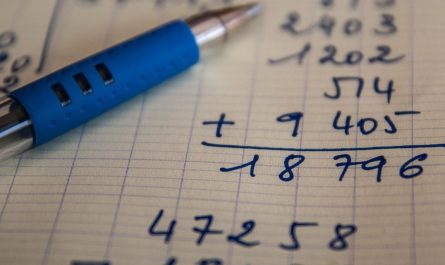 2403
1202
514
+ 9 405
18 796
47258